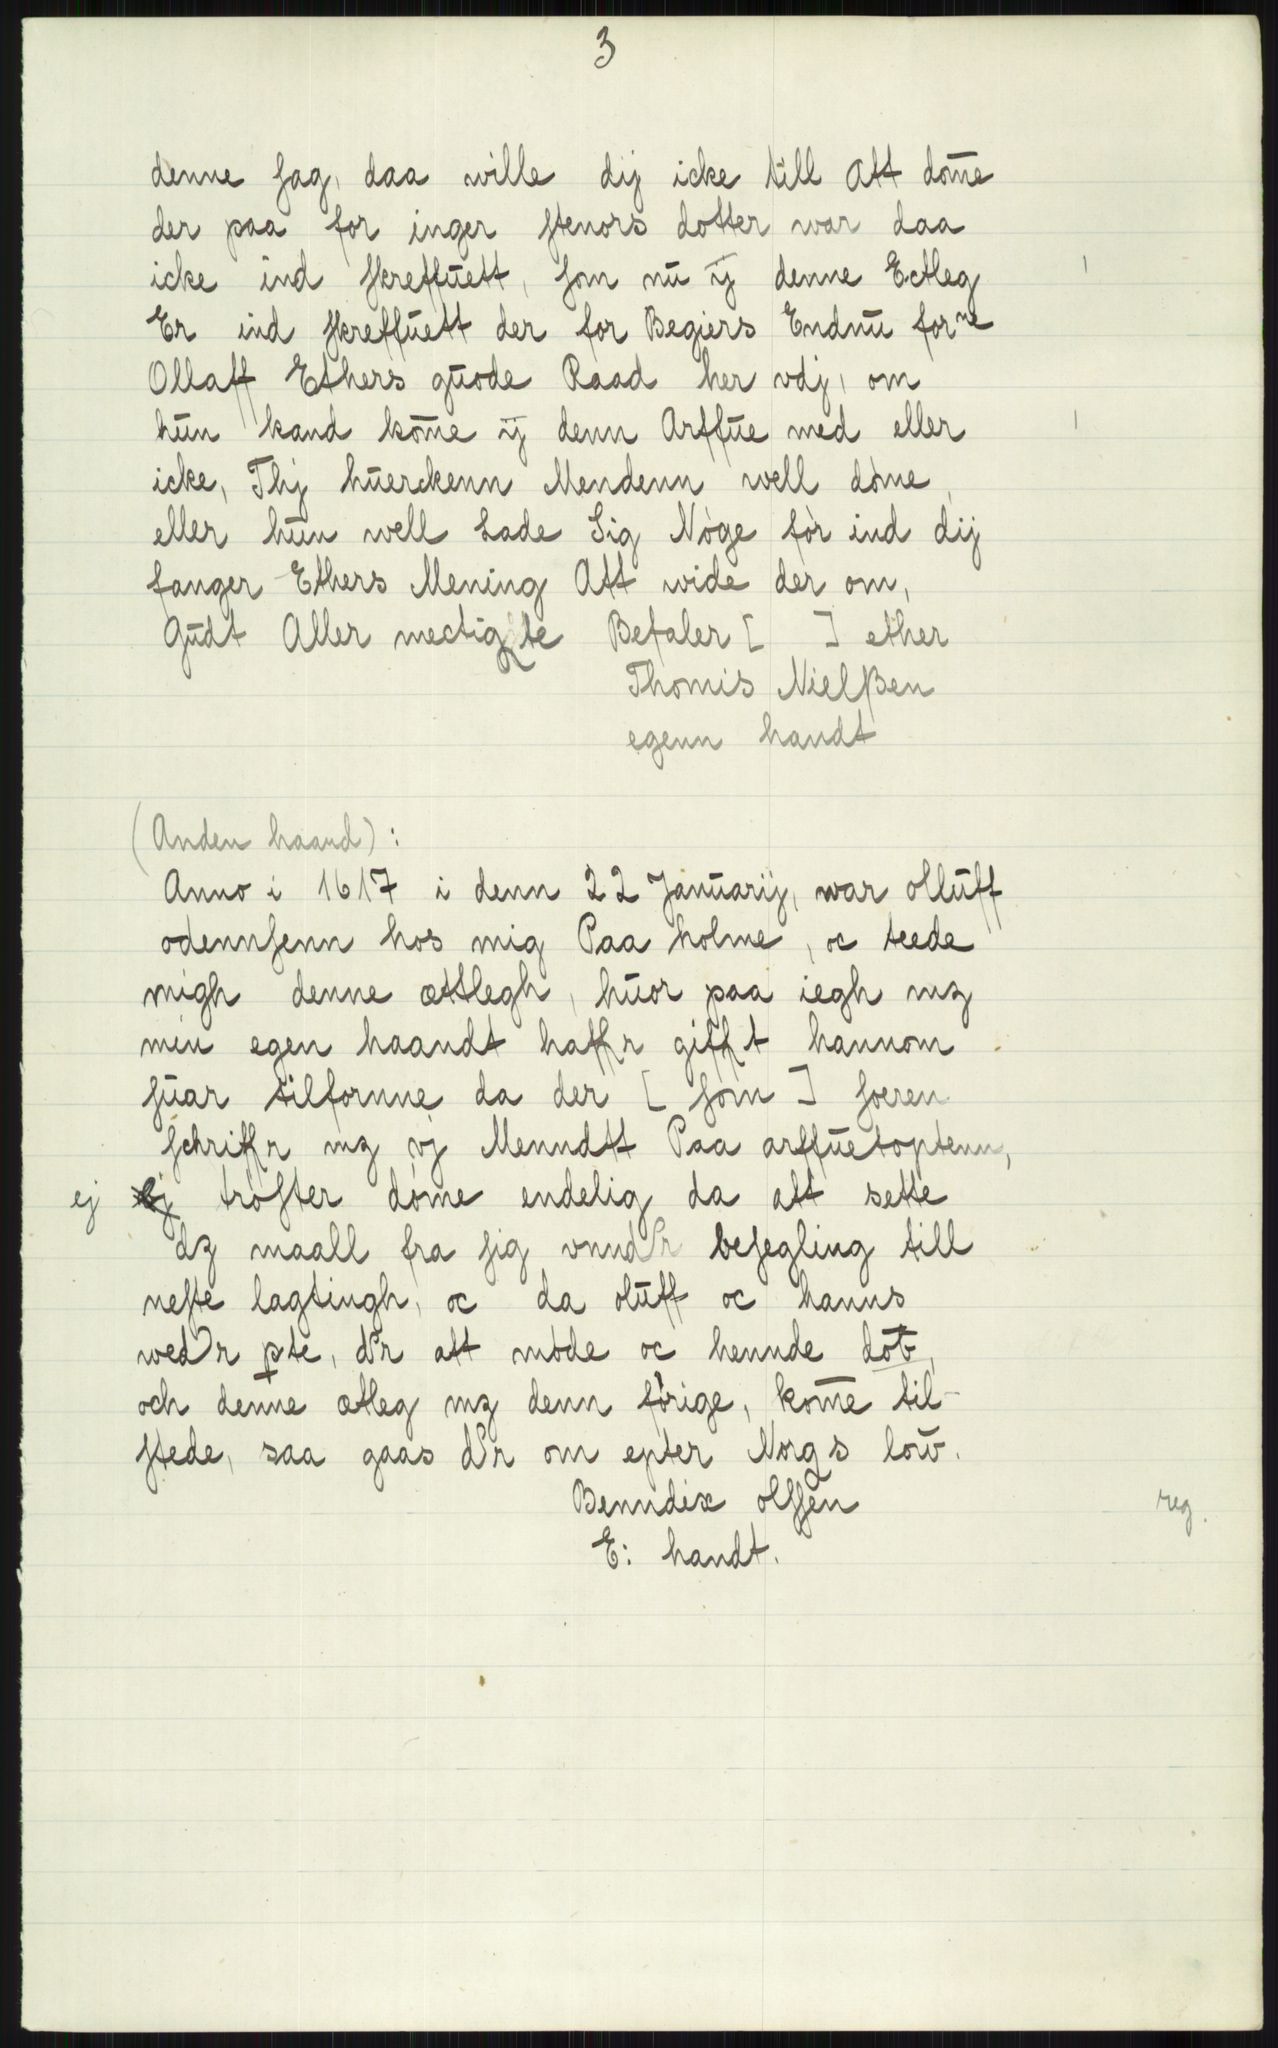 3
denne sag, daa wille dij icke till Att dom̄e
der paa for inger stenors dotter war daa
icke ind skreffuett, som nu ÿ denne Ectleg
Er ind skreffuett der for Begiers Endnu forne
Ollaff Ethers guode Raad her vdj, om
hun kand kom̄e ÿ denn Arffue med eller
icke, Thj huerckenn Mendenn well döme,
eller hun well Lade Sig Nöge för ind dij
fanger Ethers Mening Att wide der om,
Gudt Aller mectigste Befaler [ ] ether
Thomis Nielßen
egenn handt
(Anden haand):
Anno i 1617 i denn 22 Januarij, war olluff
odennsenn hos mig Paa holme, oc teede
migh denne ættlegh, huor paa iegh mz
min egen haandt haffr gifft hannom
suar tilfornne da der [ som ] soeren
schriffr mz vj Menndtt Paa arffuetoptenn,
ej ej tröster döme endelig da att sette
dz maall fra sig vnndr besegling till
neste lagtingh, oc da oluff oc hanns
wedr pte, dr att möde oc hennde dov̄,
och denne ætleg mz denn förige, kom̄e til-
stede, saa gaas dr om epter Norgs lov̄.
Benndix olssen
E: handt.
reg.